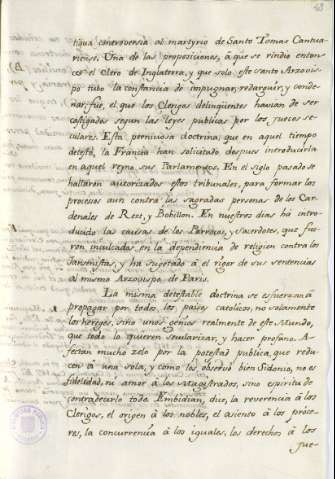 tigua controversia al martyrio de Santo Tomas Cantua-
riense. Una de las proposiciones, à que se rindio enton-
ces el Clero de Inglaterra, y que solo este santo Arzobis-
po tubo la constancia de impugnar, redarguir, y conde-
nar, fue, el que los Clerigos delinquentes havian de ser
castigados segun las leyes publicas por los Jueces se-
culares. Esta perniciosa doctrina, que en aquel tiempo
detestò la Francia han solicitado despues introducirla
en aquel reyno sus Parlamentos. En el siglo pasado se
hallaron autorizados estos tribunales, para formar los
procesos aun contra las sagradas personas de los Car-
denales de Retz, y Bobillon. En nuestros dias ha intro-
ducido las causas de los Parrocos, y Sacerdotes, que fue-
ron inculcados en la dependiencia de religion contra los
Jansenistas, y ha sugetado à el rigor de sus sentencias
al mismo Arzobispo de Paris.
La misma detestable doctrina se esfuerzan à
propagar por todos los paises catolicos, no solamente
los hereges, sino unos genios realmente de este Mundo,
que todo lo quieren secularizar, y hacer profano. A-
fectan mucho zelo por la potestad publica, que redu-
cen à una sola, y como lo observò bien Sidonio, no es
fidelidad, ni amor à los Magistrados, sino espiritu de
contradecirlo todo. Embidian, dice, la reverencia à los
Clerigos, el origen à los nobles, el asiento à los proce-
res, la concurrencia à los iguales, los derechos à los
jue-